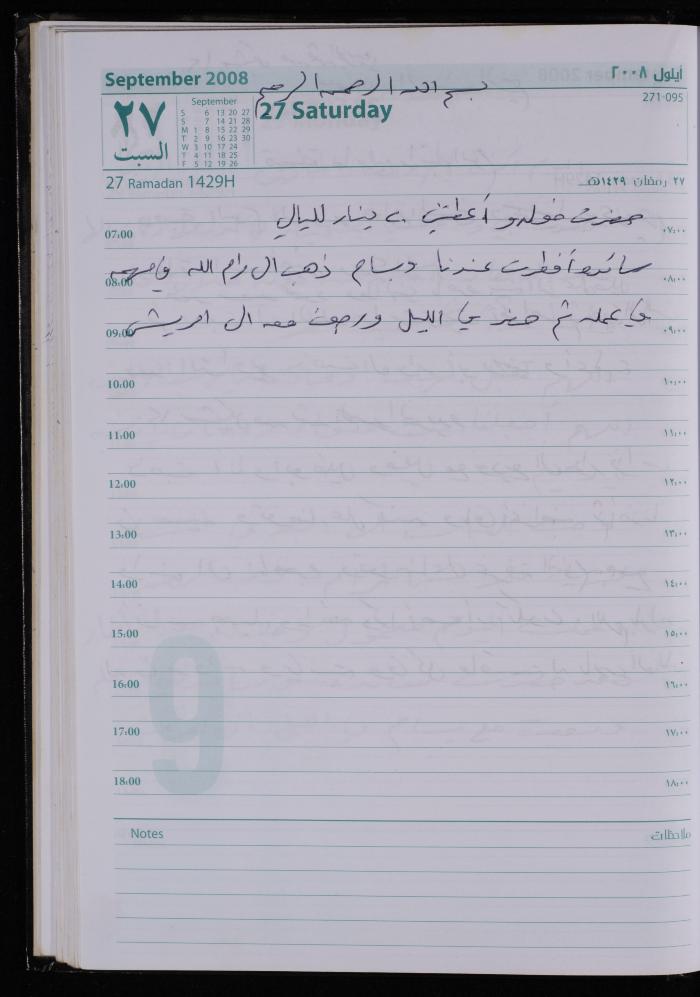 September 2008
أيلول ٢٠٠٨
بسم الله الرحمن الرحيم
٢٧
السبت
September
S 6 13 20 27
S 7 14 21 28
M 1 8 15 22 29
T 2 9 16 23 30
W 3 10 17 24
T 4 11 18 25
F 5 12 19 26
27 Saturday
271-095
27 Ramadan 1429H
٢٧ رمضان ١٤٢٩هـ
حضرت خولة و أعطتني ٢٠ دينار لليال
07:00
٠٧:٠٠
سائدة أفطرت عندنا وبسام ذهب ال رام الله
08:00
٠٨:٠٠
في عمله ثم حضر في الليل ورجعت معه ال
09:00
٠٩:٠٠
10:00
١٠:٠٠
11:00
١١:٠٠
12:00
١٢:٠٠
13:00
١٣:٠٠
14:00
١٤:٠٠
15:00
١٥:٠٠
9
16:00
١٦:٠٠
17:00
١٧:٠٠
18:00
١٨:٠٠
Notes
ملاحظات